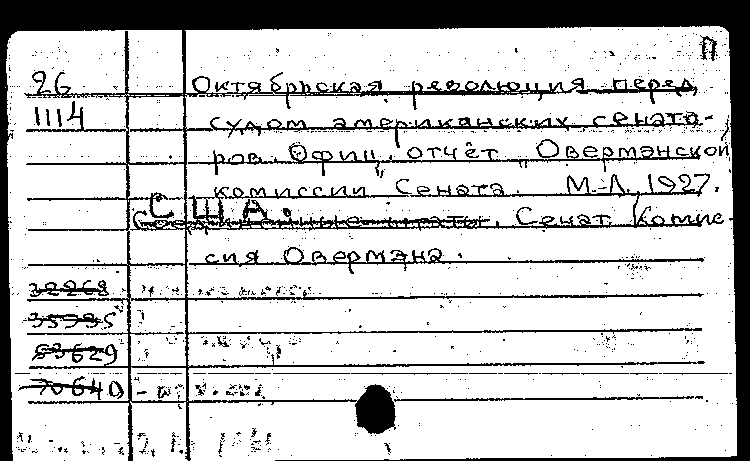 П
26 Октябрьская революция перед
1114 судом американских сенато-
ров. Офиц. отчёт "Оверманской
комиссии" Сената. М.-Л., 1927.
США.
Соединенные штаты. Сенат. Комис-
сия Овермана.
32268
35335
53629
70640